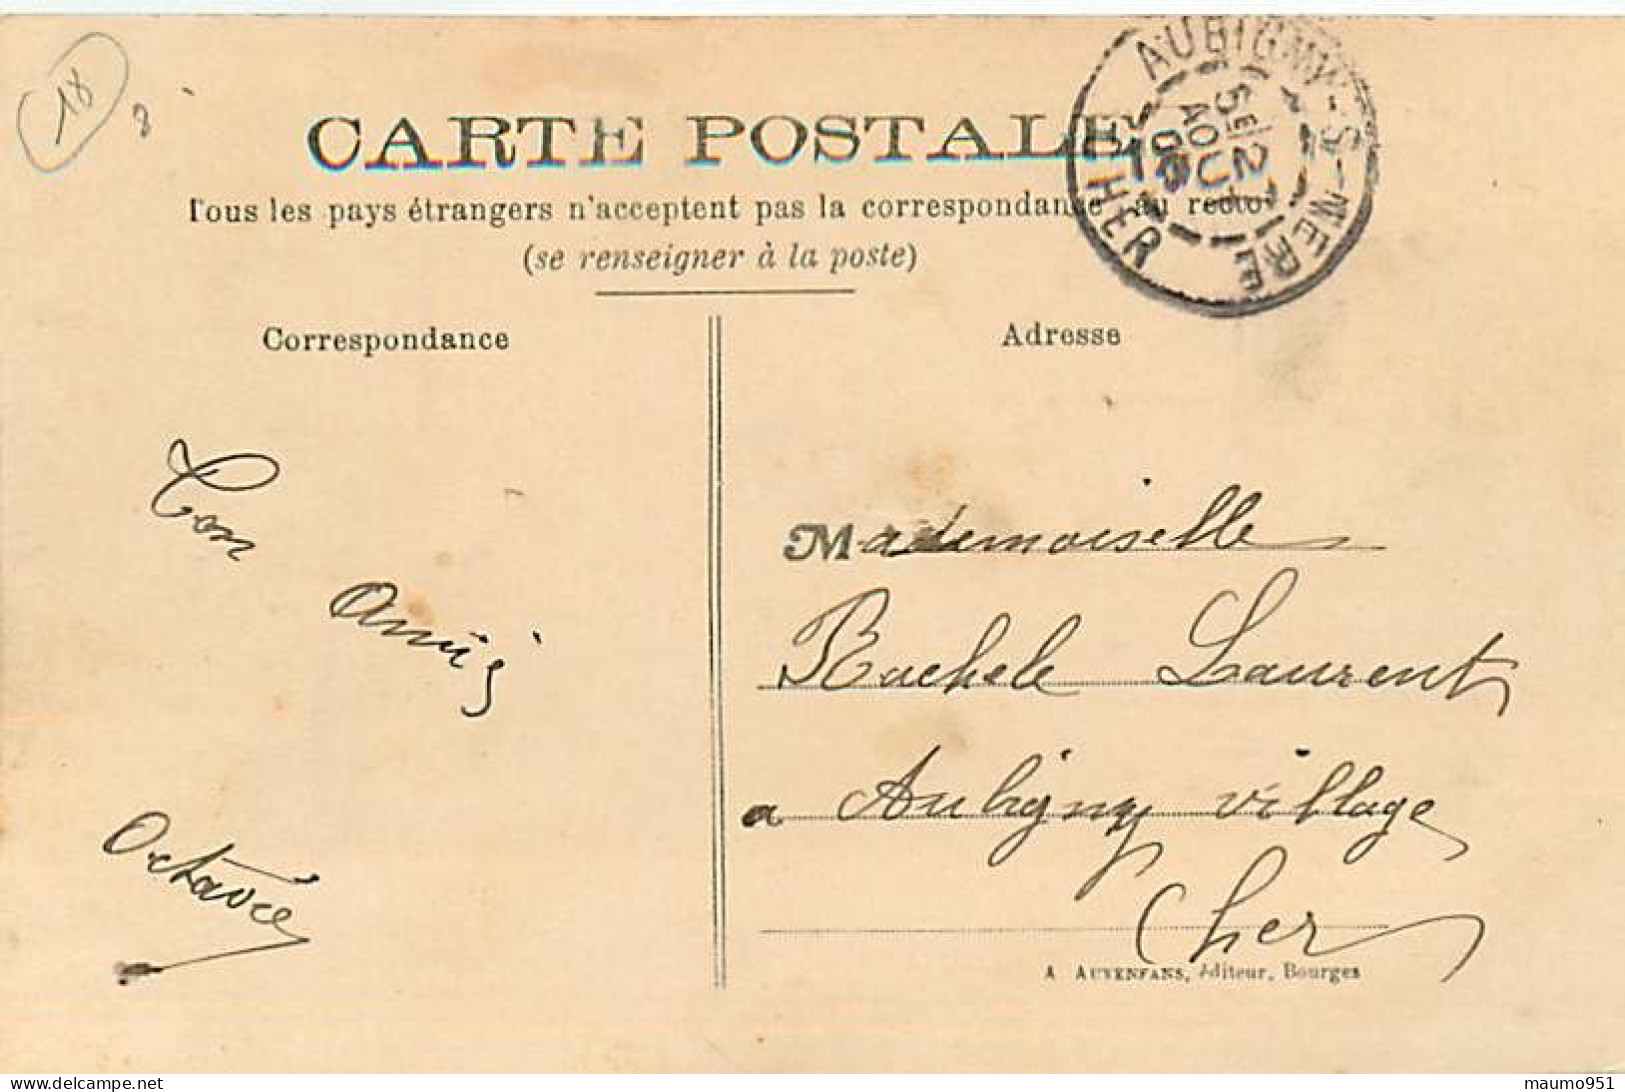 18
8
CARTE POSTALE
Tous les pays étrangers n'acceptent pas la correspondance au recto
(se renseigner à la poste)
AUBIGNY-S-NERE
5E
2
AOUT
06
CHER
Correspondance
Adresse
Ton
Octavie
Mademoiselle
Rachele Laurent
a Aubigny village
Cher
A AUXENFANS, éditeur, Bourges
maumo951